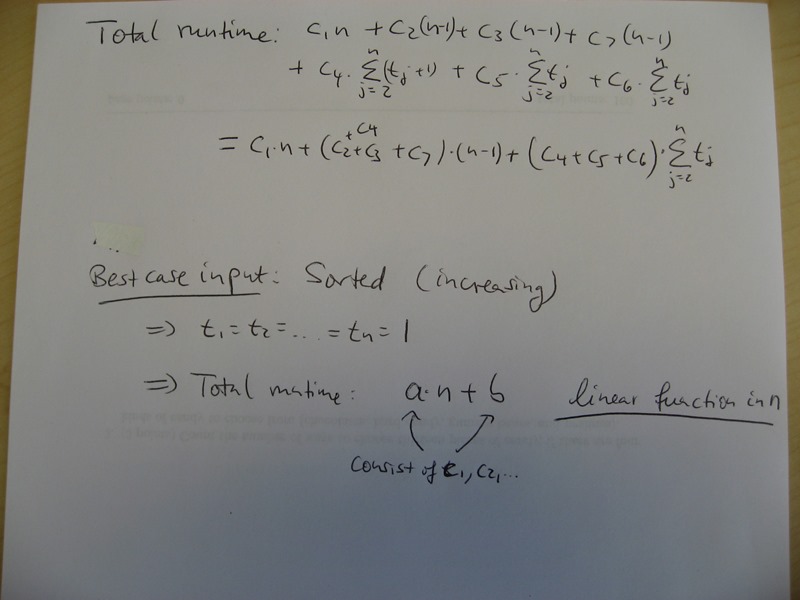 Total runtime: c₁n + c₂(n-1) + c₃(n-1) + c₇(n-1)
+ c₄·∑_{j=2}^{n}(tⱼ+1) + c₅·∑_{j=2}^{n}tⱼ + c₆·∑_{j=2}^{n}tⱼ
+c₄
= c₁·n + (c₂+c₃+c₇)·(n-1) + (c₄+c₅+c₆)·∑_{j=2}^{n}tⱼ
...
Best case input: Sorted (increasing)
⇒ t₁=t₂=...=tₙ=1
⇒ Total runtime: a·n+b linear function in n
consist of c₁, c₂,...